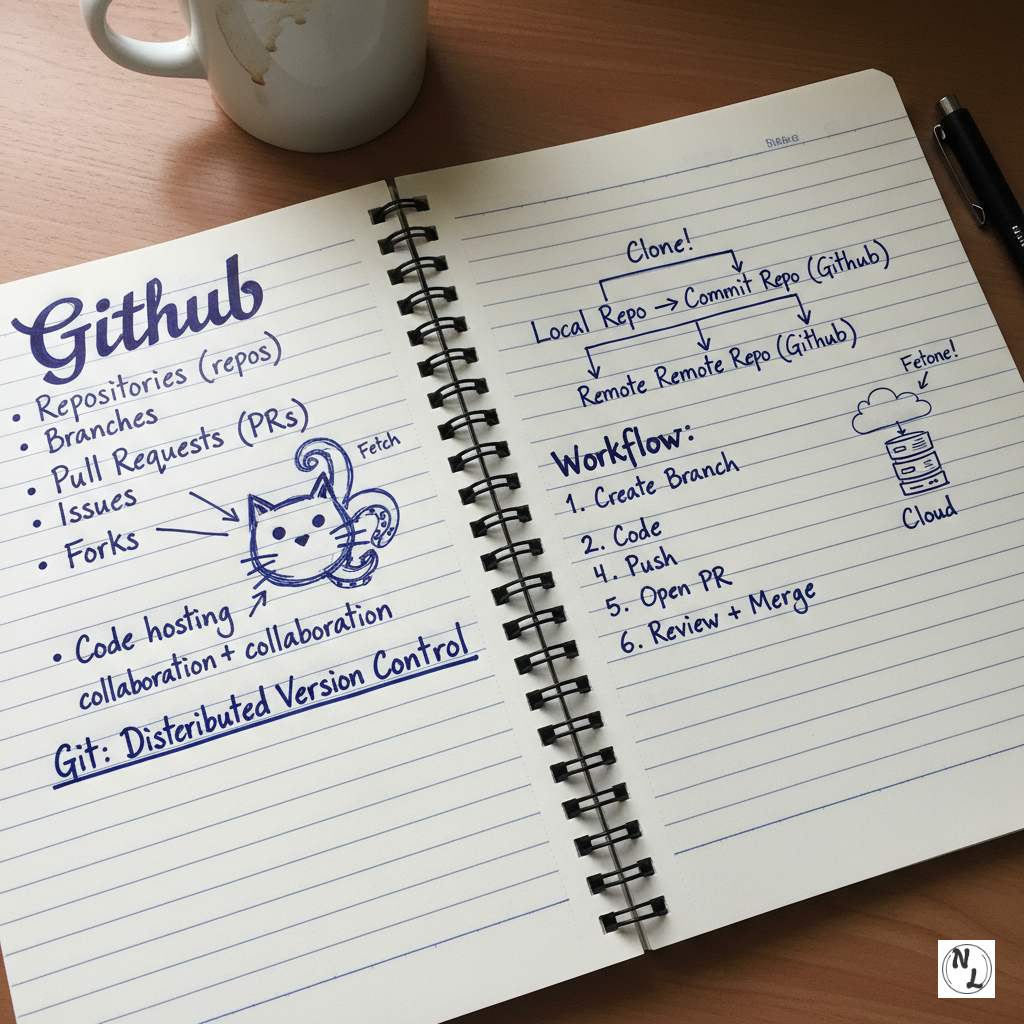 Github
• Repositories (repos)
• Branches
• Pull Requests (PRs)
• Issues
• Forks
Fetch
• Code hosting
collaboration + collaboration
Git: Disteributed Version Control
Clone!
Local Repo → Commit Repo (Github)
Remote Remote Repo (Github)
Fetone!
Cloud
Workflow:
1. Create Branch
2. Code
4. Push
5. Open PR
6. Review + Merge
N
L